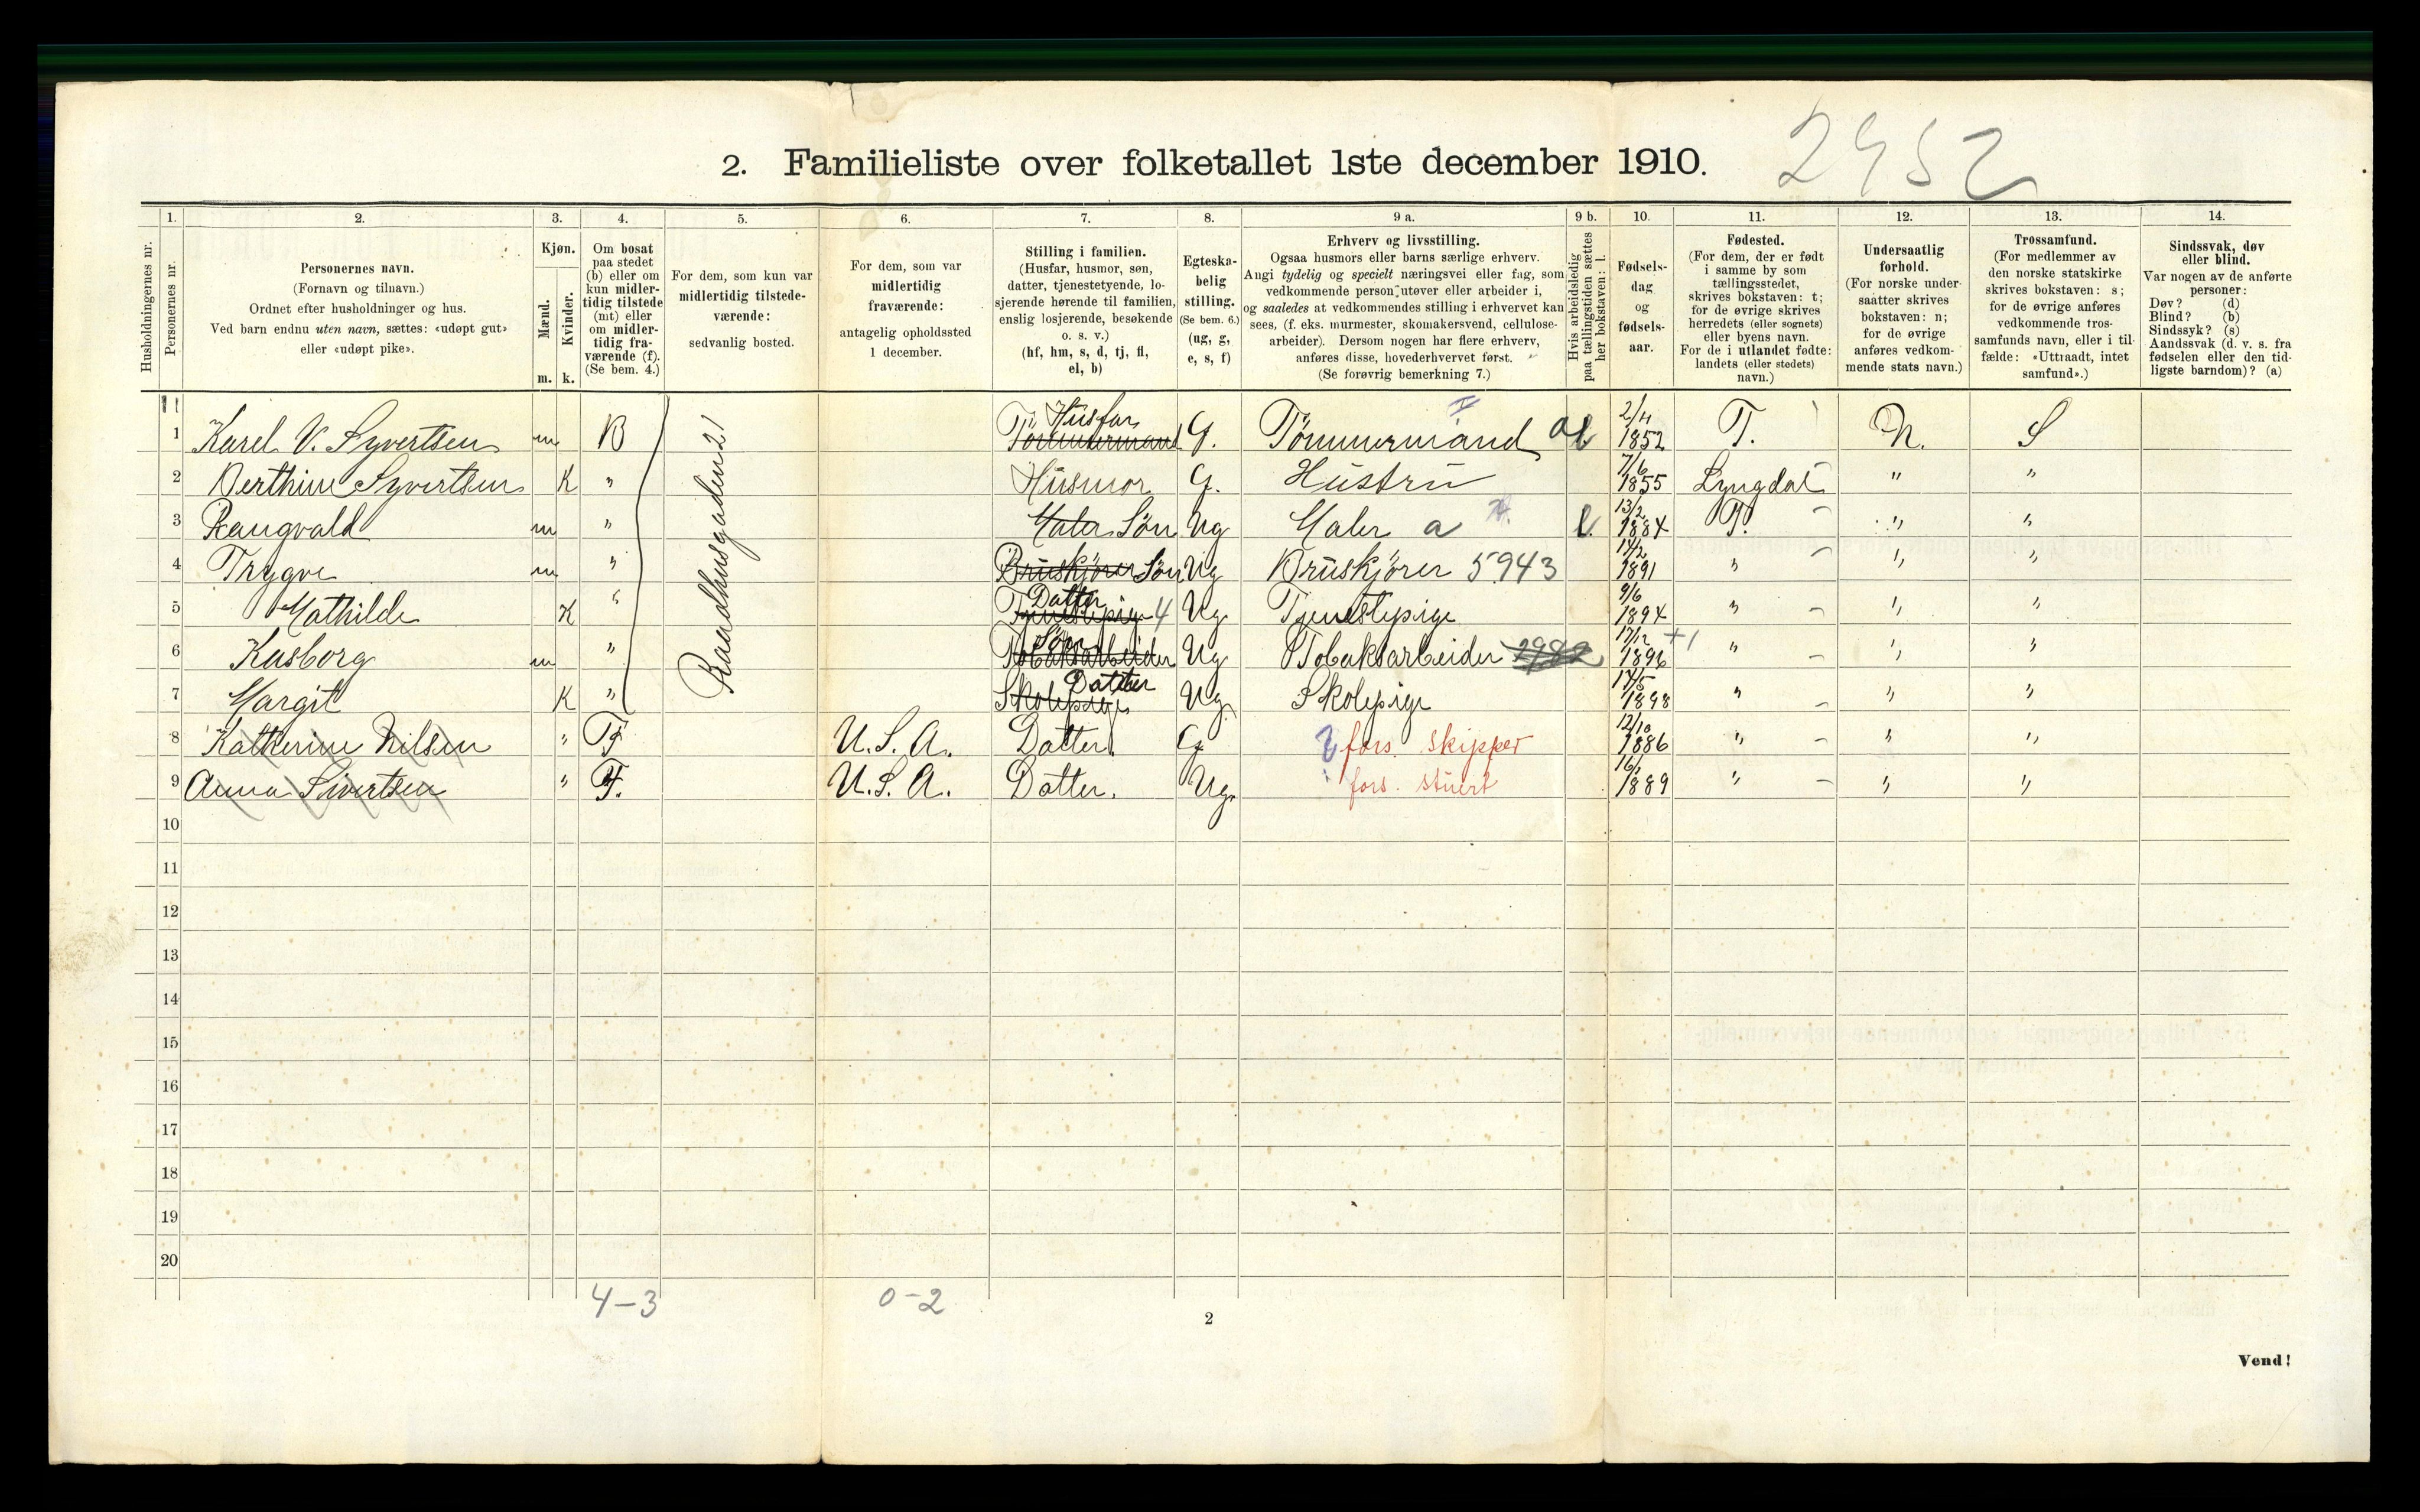 2952
2. Familieliste over folketallet 1ste december 1910.
1. 2. 3. 4. 5. 6. 7. 8. 9 a. 9 b. 10. 11. 12. 13. 14.
Husholdningernes nr.
Personernes nr.
Personernes navn.
(Fornavn og tilnavn.)
Ordnet efter husholdninger og hus.
Ved barn endnu uten navn, sættes: «udøpt gut»
eller «udøpt pike».
Kjøn.
Mænd. Kvinder.
m. k.
Om bosat
paa stedet
(b) eller om
kun midler-
tidig tilstede
(mt) eller
om midler-
tidig fra-
værende (f).
(Se bem. 4.)
For dem, som kun var
midlertidig tilstede-
værende:
sedvanlig bosted.
For dem, som var
midlertidig
fraværende:
antagelig opholdssted
1 december.
Stilling i familien.
(Husfar, husmor, søn,
datter, tjenestetyende, lo-
sjerende hørende til familien,
enslig losjerende, besøkende
o. s. v.)
(hf, hm, s, d, tj, fl,
el, b)
Egteska-
belig
stilling.
(Se bem. 6.)
(ug, g,
e, s, f)
Erhverv og livsstilling.
Ogsaa husmors eller barns særlige erhverv.
Angi tydelig og specielt næringsvei eller fag, som
vedkommende person utøver eller arbeider i,
og saaledes at vedkommendes stilling i erhvervet kan
sees, (f. eks. murmester, skomakersvend, cellulose-
arbeider). Dersom nogen har flere erhverv,
anføres disse, hovederhvervet først.
(Se forøvrig bemerkning 7.)
Hvis arbeidsledig
paa tællingstiden sættes
her bokstaven: l.
Fødsels-
dag
og
fødsels-
aar.
Fødested.
(For dem, der er født
i samme by som
tællingsstedet,
skrives bokstaven: t;
for de øvrige skrives
herredets (eller sognets)
eller byens navn.
For de i utlandet fødte:
landets (eller stedets)
navn.)
Undersaatlig
forhold.
(For norske under-
saatter skrives
bokstaven: n;
for de øvrige
anføres vedkom-
mende stats navn.)
Trossamfund.
(For medlemmer av
den norske statskirke
skrives bokstaven: s;
for de øvrige anføres
vedkommende tros-
samfunds navn, eller i til-
fælde: «Uttraadt, intet
samfund».)
Sindssvak, døv
eller blind.
Var nogen av de anførte
personer:
Døv? (d)
Blind? (b)
Sindssyk? (s)
Aandssvak (d. v. s. fra
fødselen eller den tid-
ligste barndom)? (a)
Raadhusgaden 21
1 Karel V. Syvertsen m B Tømmermand Husfar G. Tømmermand l 2/4 1852 T. N. S
2 Berthine Syvertsen K " Husmor G. Hustru 7/6 1855 Lyngdal " "
3 Rangvald m " Maler Søn Ug Maler a l. 13/2 1884 T. " "
4 Trygve m " Bruskjører Søn Ug Bruskjører 5943 1891 " " "
5 Mathilde K " Tjenestepige Datter 4 Ug. Tjenestepige 9/6 1894 " " "
6 Kasborg m " Tobaksarbeider Søn Ug Tobaksarbeider 2982 17/12 1896 +1 " " "
7 Margit K " Skolepige Datter Ug. Skolepige 17/5 1898 " " "
8 Katherine Nilsen " F U. S. A. Datter. G fors. skipper 12/10 1886 " " "
9 Anna Sivertsen " F. U. S. A. Datter. Ug. fors. stuert 1889 " " "
10
11
12
13
14
15
16
17
18
19
20
4–3 0–2
2
Vend!